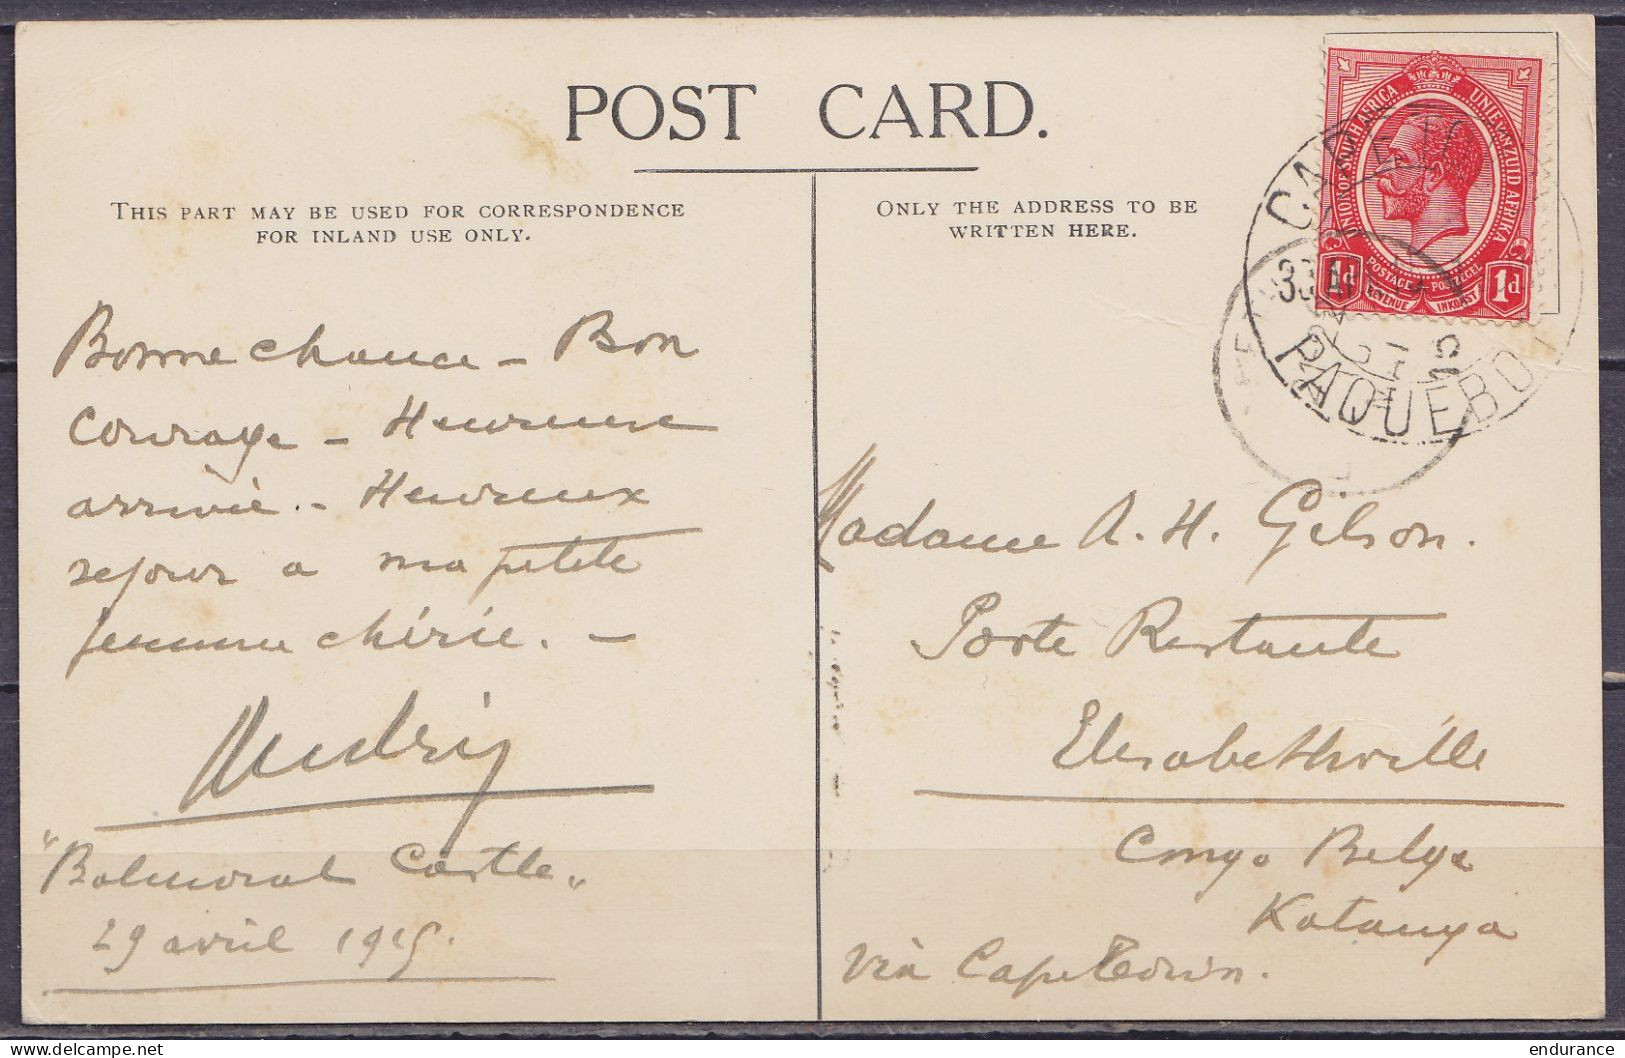 POST CARD.
THIS PART MAY BE USED FOR CORRESPONDENCE
FOR INLAND USE ONLY.
ONLY THE ADDRESS TO BE
WRITTEN HERE.
UNION OF SOUTH AFRICA
UNIE VAN ZUID AFRIKA
1d
POSTAGE
POSTZEGEL
REVENUE
INKOMST
1d
PAQUEBOT
15
Bonne chance - Bon
courage - Heureuse
arrivée. - Heureux
sejour a ma petite
femme chérie. -
"Balmoral Castle"
29 avril 1915.
Madame A. H. Gilson.
Poste Restante
Elisabethville
Congo Belge
Katanga
via Capetown.
endurance